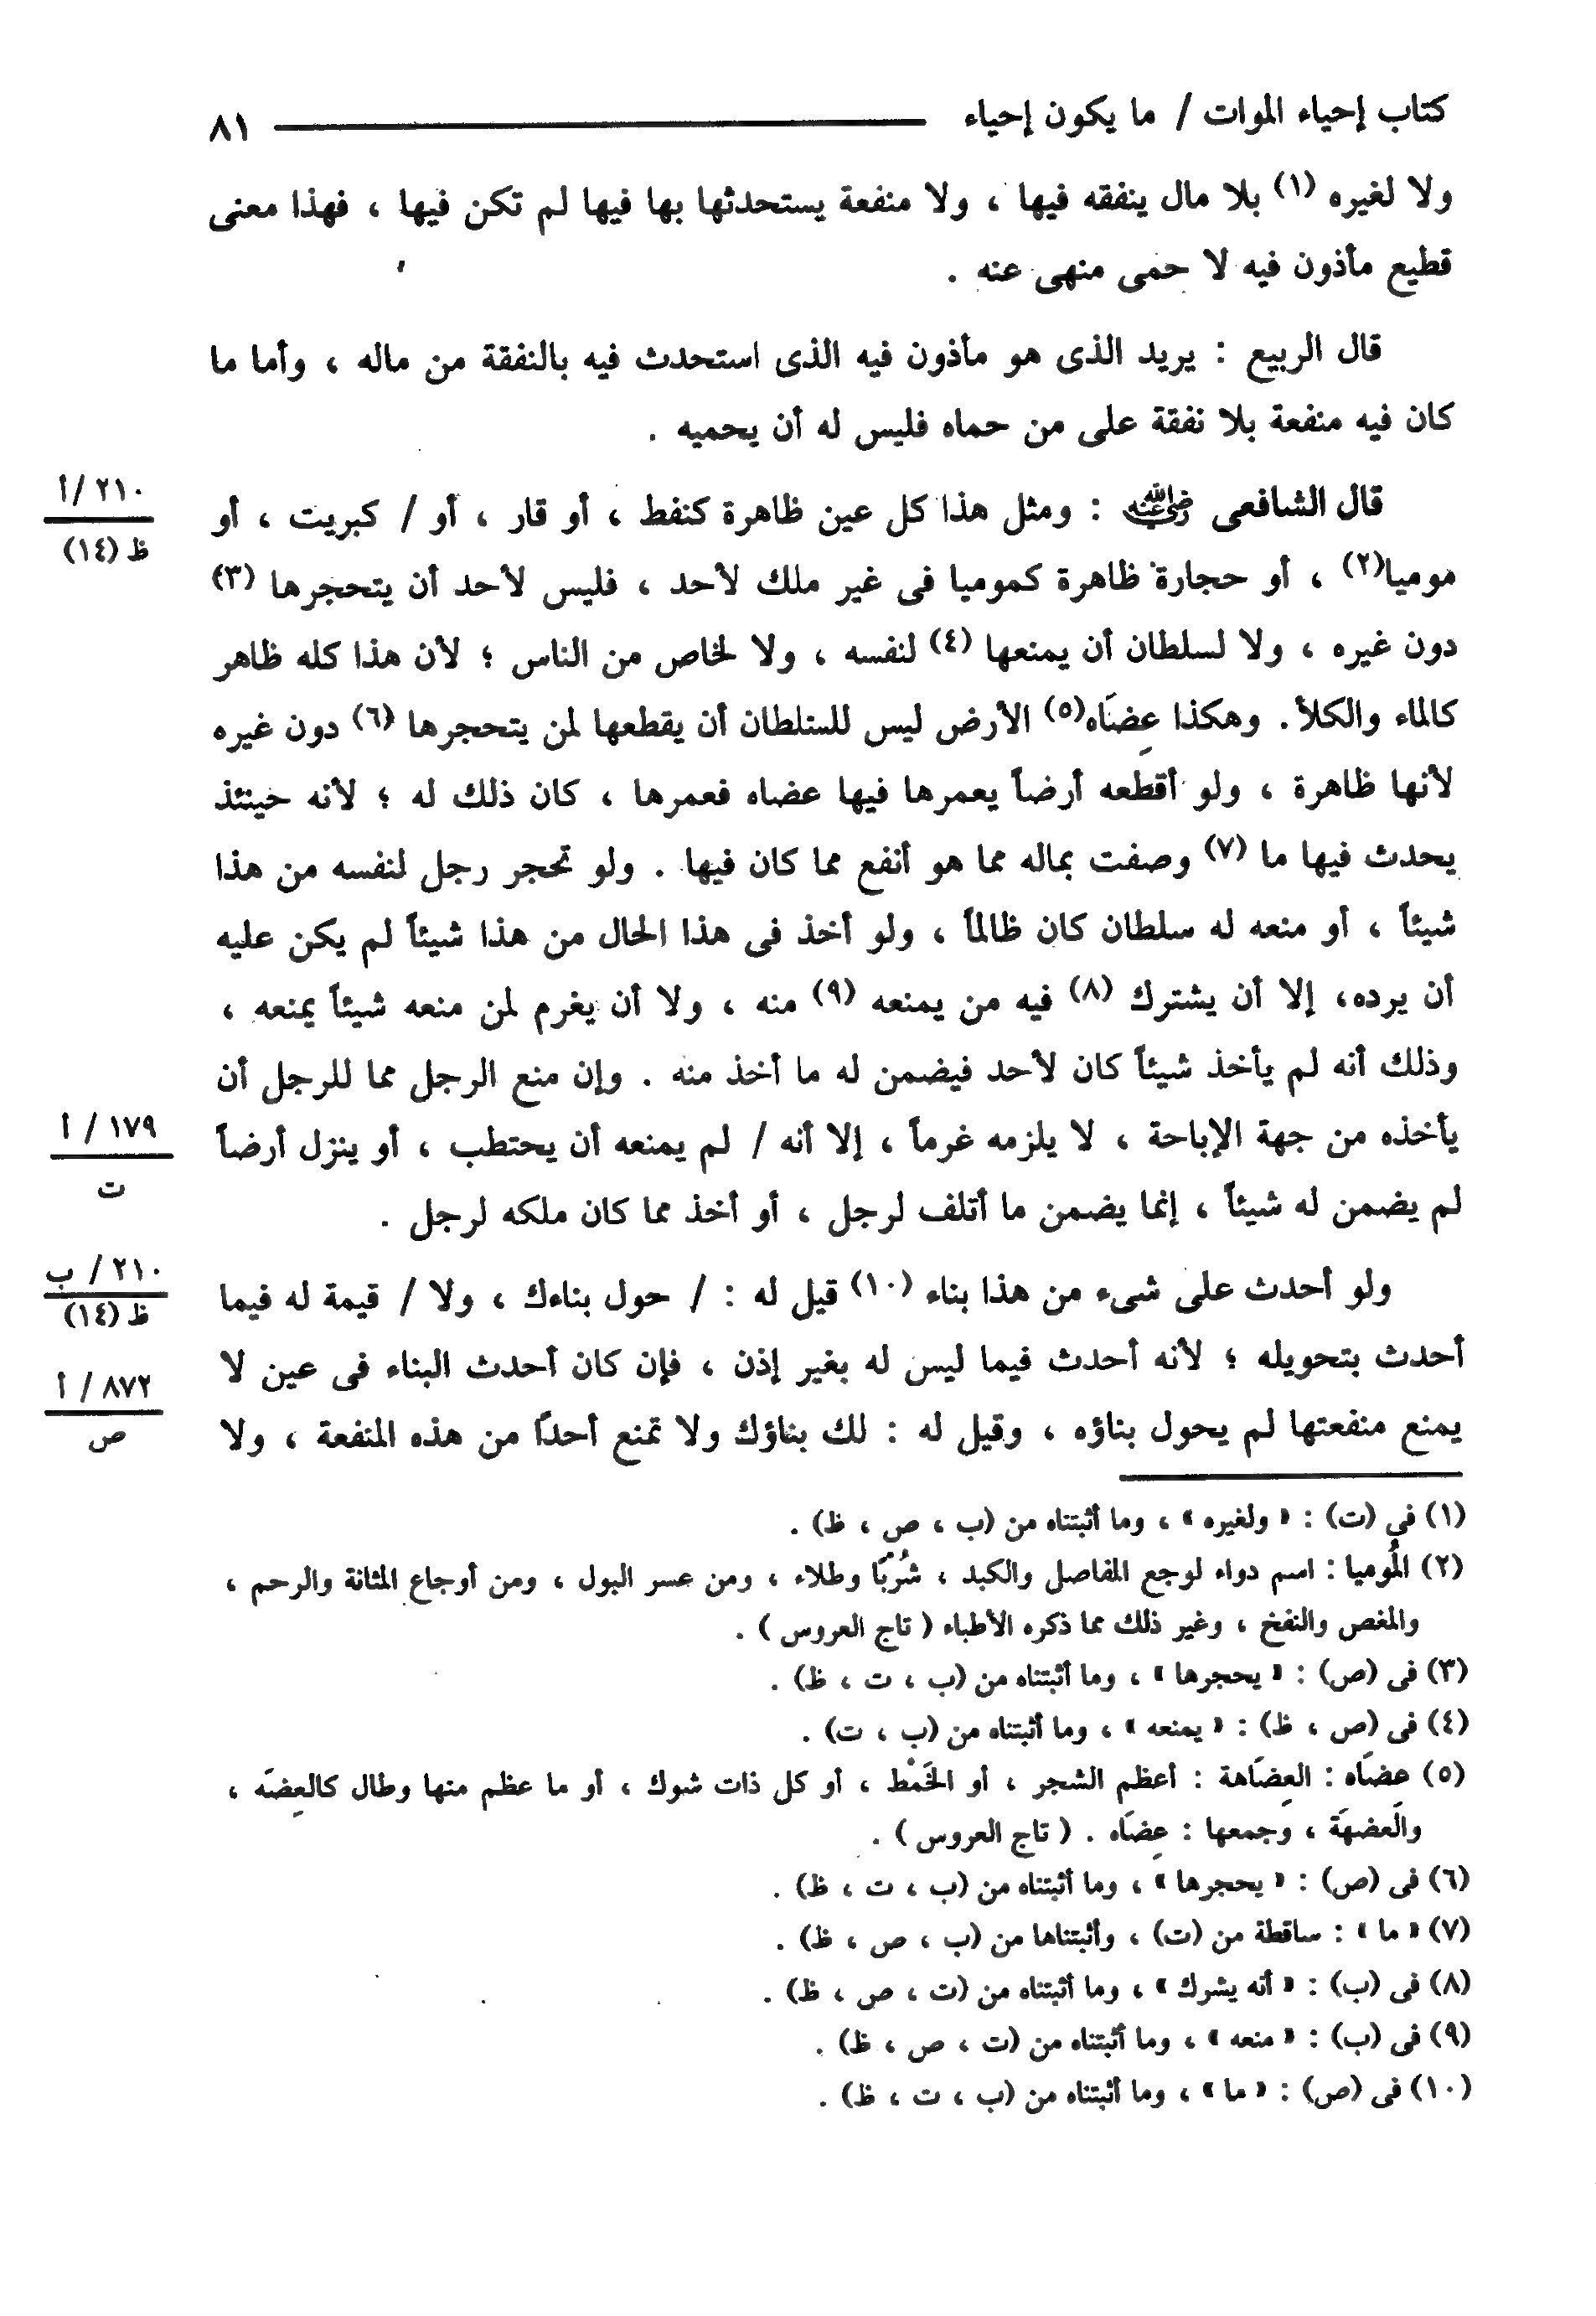 كتاب إحياء الموات / ما يكون إحياء ٨١
ولا لغيره (١) بلا مال ينفقه فيها ، ولا منفعة يستحدثها بها فيها لم تكن فيها ، فهذا معنى
قطيع مأذون فيه لا حمى منهى عنه .
قال الربيع : يريد الذى هو مأذون فيه الذى استحدث فيه بالنفقة من ماله ، وأما ما
كان فيه منفعة بلا نفقة على من حماه فليس له أن يحميه .
قال الشافعى رضي الله عنه : ومثل هذا كل عين ظاهرة كنفط ، أو قار ، أو / كبريت ، أو
٢١٠ /أ
ظ (١٤)
موميا(٢) ، أو حجارة ظاهرة كموميا فى غير ملك لأحد ، فليس لأحد أن يتحجرها (٣)
دون غيره ، ولا لسلطان أن يمنعها (٤) لنفسه ، ولا لخاص من الناس ؛ لأن هذا كله ظاهر
كالماء والكلأ. وهكذا عِضَاه(٥) الأرض ليس للسلطان أن يقطعها لمن يتحجرها (٦) دون غيره
لأنها ظاهرة ، ولو أقطعه أرضاً يعمرها فيها عضاه فعمرها ، كان ذلك له ؛ لأنه حينئذ
يحدث فيها ما (٧) وصفت بماله مما هو أنفع مما كان فيها . ولو تحجر رجل لنفسه من هذا
شيئاً ، أو منعه له سلطان كان ظالماً ، ولو أخذ فى هذا الحال من هذا شيئاً لم يكن عليه
أن يرده، إلا أن يشترك (٨) فيه من يمنعه (٩) منه ، ولا أن يغرم لمن منعه شيئاً يمنعه ،
وذلك أنه لم يأخذ شيئاً كان لأحد فيضمن له ما أخذ منه . وإن منع الرجل مما للرجل أن
يأخذه من جهة الإباحة ، لا يلزمه غرماً ، إلا أنه / لم يمنعه أن يحتطب ، أو ينزل أرضاً
١٧٩ / أ
ت
لم يضمن له شيئاً ، إنما يضمن ما أتلف لرجل ، أو أخذ مما كان ملكه لرجل .
ولو أحدث على شىء من هذا بناء (١٠) قيل له : / حول بناءك ، ولا / قيمة له فيما
٢١٠ / ب
ظ (١٤)
أحدث بتحويله ؛ لأنه أحدث فيما ليس له بغير إذن ، فإن كان أحدث البناء فى عين لا
٨٧٢ / أ
ص
يمنع منفعتها لم يحول بناؤه ، وقيل له : لك بناؤك ولا تمنع أحدًا من هذه المنفعة ، ولا
(١) فى (ت) : « ولغيره » ، وما أثبتناه من (ب ، ص ، ظ) .
(٢) المُوميا : اسم دواء لوجع المفاصل والكبد ، شُرْبًا وطلاء ، ومن عسر البول ، ومن أوجاع المثانة والرحم ،
والمغص والنفخ ، وغير ذلك مما ذكره الأطباء ( تاج العروس ) .
(٣) فى (ص) : « يحجرها » ، وما أثبتناه من (ب ، ت ، ظ) .
(٤) فى (ص ، ظ) : « يمنعه » ، وما أثبتناه من (ب ، ت) .
(٥) عضَاه : العِضَاهة : أعظم الشجر ، أو الخَمْط ، أو كل ذات شوك ، أو ما عظم منها وطال كالعِضَه ،
والعضهَة ، وجمعها : عِضَاه . ( تاج العروس ) .
(٦) فى (ص) : « يحجرها » ، وما أثبتناه من (ب ، ت ، ظ) .
(٧) « ما » : ساقطة من (ت) ، وأثبتناها من (ب ، ص ، ظ) .
(٨) فى (ب) : « أنه يشرك » ، وما أثبتناه من (ت ، ص ، ظ) .
(٩) فى (ب) : « منعه » ، وما أثبتناه من (ت ، ص ، ظ) .
(١٠) فى (ص) : « ما » ، وما أثبتناه من (ب ، ت ، ظ) .